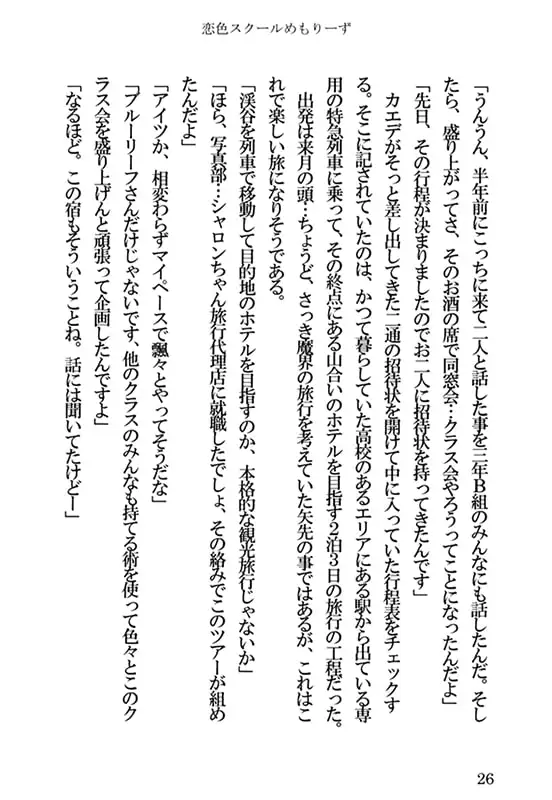 恋色スクールめもりーず
「うんうん、半年前にこっちに来て二人と話した事を三年B組のみんなにも話したんだ。そし
たら、盛り上がってさ、そのお酒の席で同窓会…クラス会やろうってことになったんだよ」
「先日、その行程が決まりましたのでお二人に招待状を持ってきたんです」
カエデがそっと差し出してきた二通の招待状を開けて中に入っていた行程表をチェックす
る。そこに記されていたのは、かつて暮らしていた高校のあるエリアにある駅から出ている専
用の特急列車に乗って、その終点にある山合いのホテルを目指す2泊3日の旅行の工程だった。
出発は来月の頭…ちょうど、さっき魔界の旅行を考えていた矢先の事ではあるが、これはこ
れで楽しい旅になりそうである。
「渓谷を列車で移動して目的地のホテルを目指すのか、本格的な観光旅行じゃないか」
「ほら、写真部…シャロンちゃん旅行代理店に就職したでしょ、その絡みでこのツアーが組め
たんだよ」
「アイツか、相変わらずマイペースで飄々とやってそうだな」
「ブルーリーフさんだけじゃないです、他のクラスのみんなも持てる術を使って色々とこのク
ラス会を盛り上げんと頑張って企画したんですよ」
「なるほど。この宿もそういうことね。話には聞いてたけどー」
26